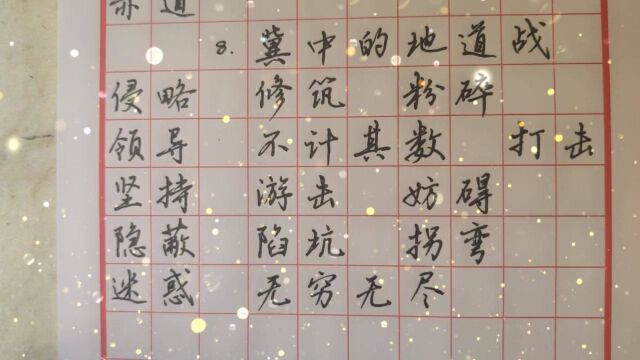 赤道
8. 冀中的地道战
侵略 修筑 粉碎
领导 不计其数 打击
坚持 游击 妨碍
隐蔽 陷坑 拐弯
迷惑 无穷无尽